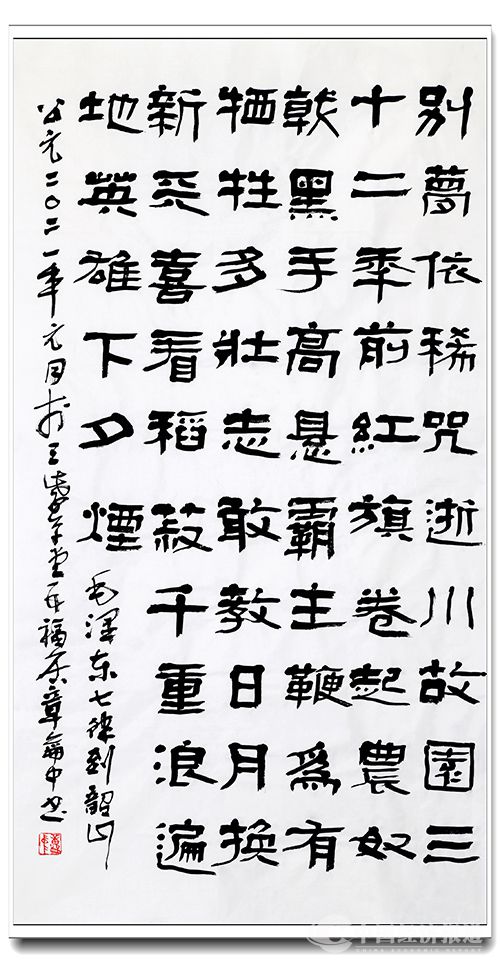 别夢依稀咒逝川故園三
十二年前紅旗卷起農奴
戟黑手高悬霸主鞭爲有
牺牲多壯志敢教日月换
新天喜看稻菽千重浪遍
地英雄下夕煙
毛澤东七律到韶山
公元二〇二一年元月於三草堂福章中书
中国经济报道